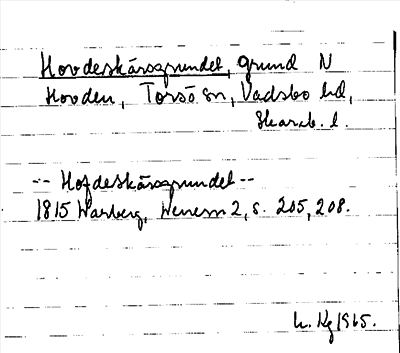 Hovdeskärsgrundet, grund N
Hovden, Torsö sn, Vadsbo hd,
Skarab. l.
-- Hofdeskärsgrundet --
1815 Warberg, Wenern 2, s. 205, 208.
1965.